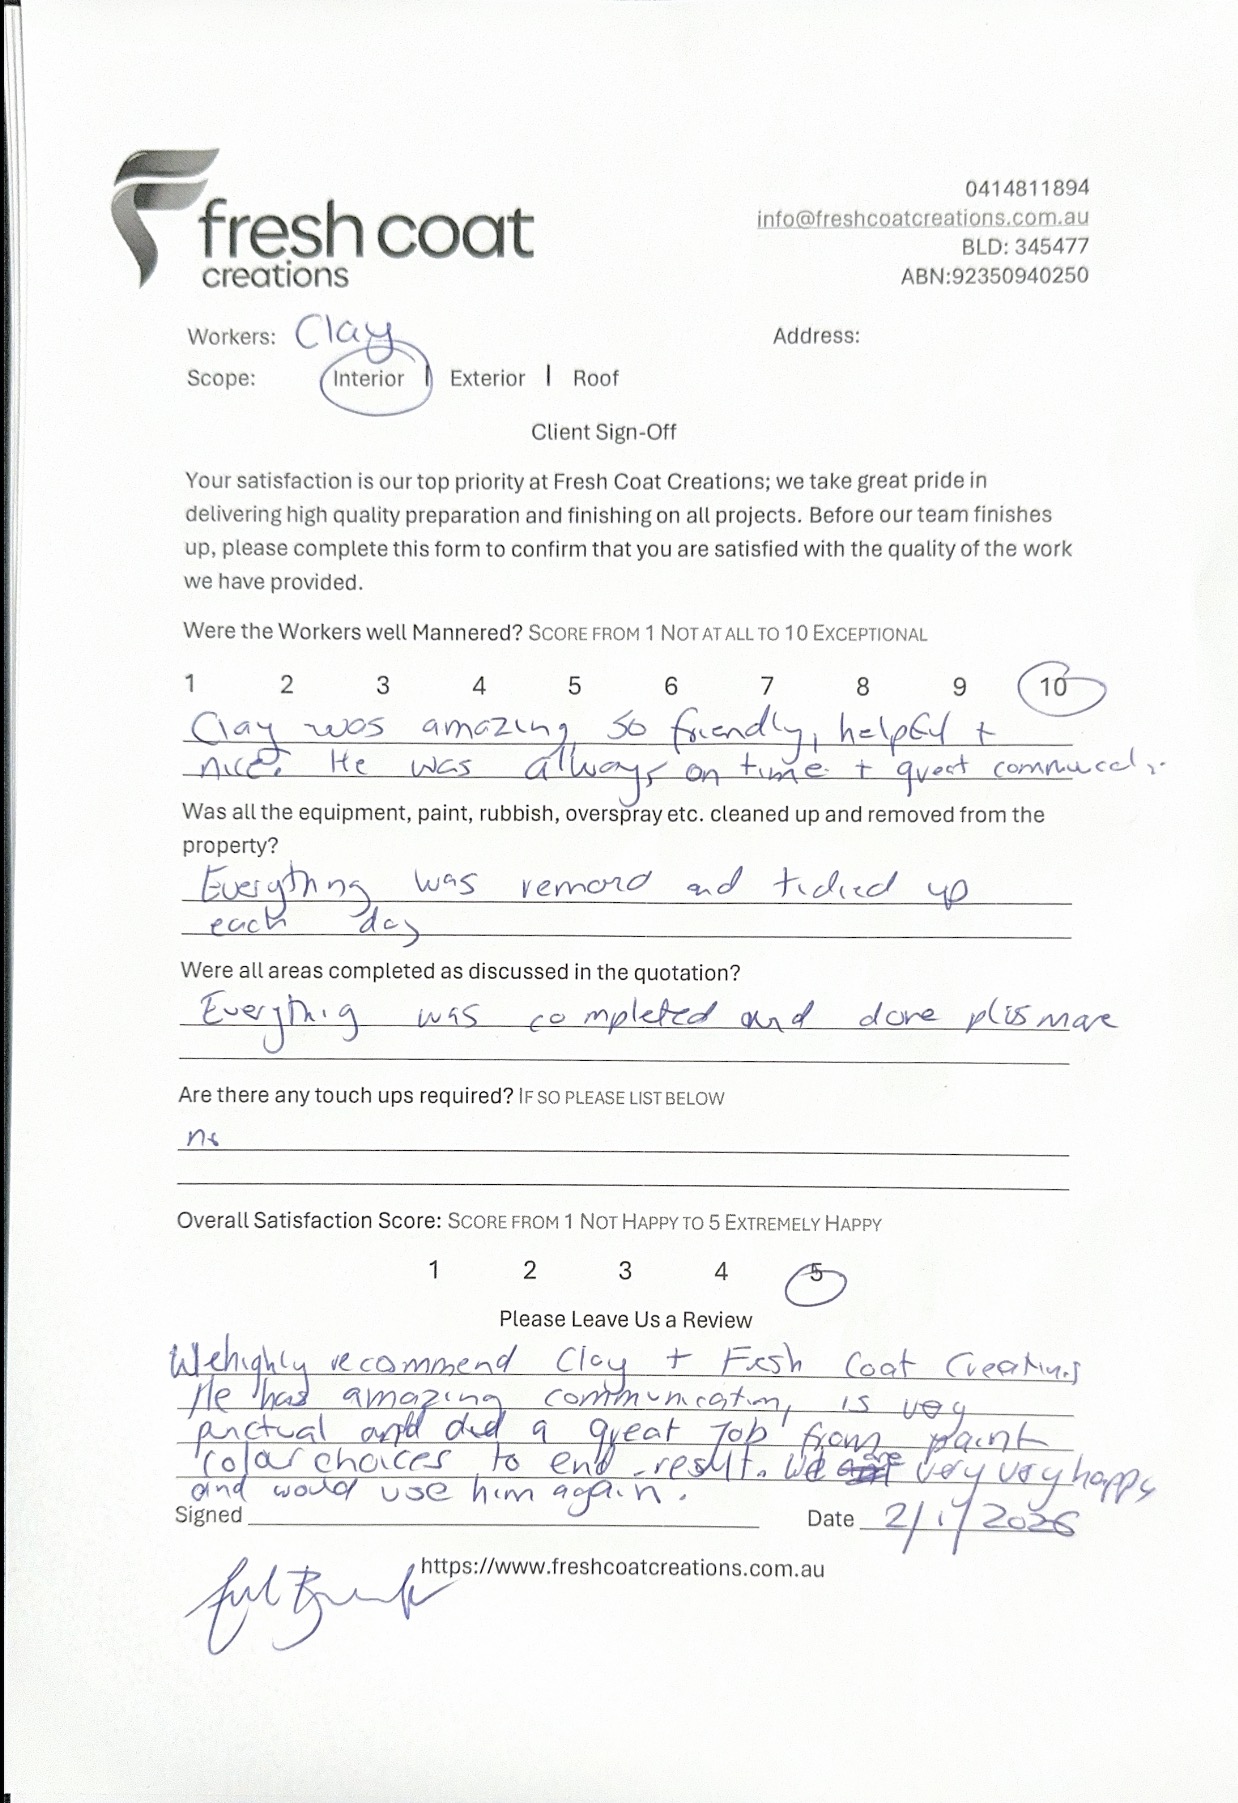 fresh coat
creations
0414811894
info@freshcoatcreations.com.au
BLD: 345477
ABN:92350940250
Workers: Clay
Address:
Scope: Interior | Exterior | Roof
Client Sign-Off
Your satisfaction is our top priority at Fresh Coat Creations; we take great pride in
delivering high quality preparation and finishing on all projects. Before our team finishes
up, please complete this form to confirm that you are satisfied with the quality of the work
we have provided.
Were the Workers well Mannered? SCORE FROM 1 NOT AT ALL TO 10 EXCEPTIONAL
1 2 3 4 5 6 7 8 9 10
Clay was amazing, so friendly, helpful +
nice. He was always on time + great
Was all the equipment, paint, rubbish, overspray etc. cleaned up and removed from the
property?
Everything was removed and tidied up
each day
Were all areas completed as discussed in the quotation?
Everything was completed and done plus more
Are there any touch ups required? IF SO PLEASE LIST BELOW
no
Overall Satisfaction Score: SCORE FROM 1 NOT HAPPY TO 5 EXTREMELY HAPPY
1 2 3 4 5
Please Leave Us a Review
We highly recommend Clay + Fresh Coat Creations
He has amazing communication, is very
punctual and did a great job from paint
colour choices to end result. We are very very happy
and would use him again.
Signed Date 2/1/2026
https://www.freshcoatcreations.com.au